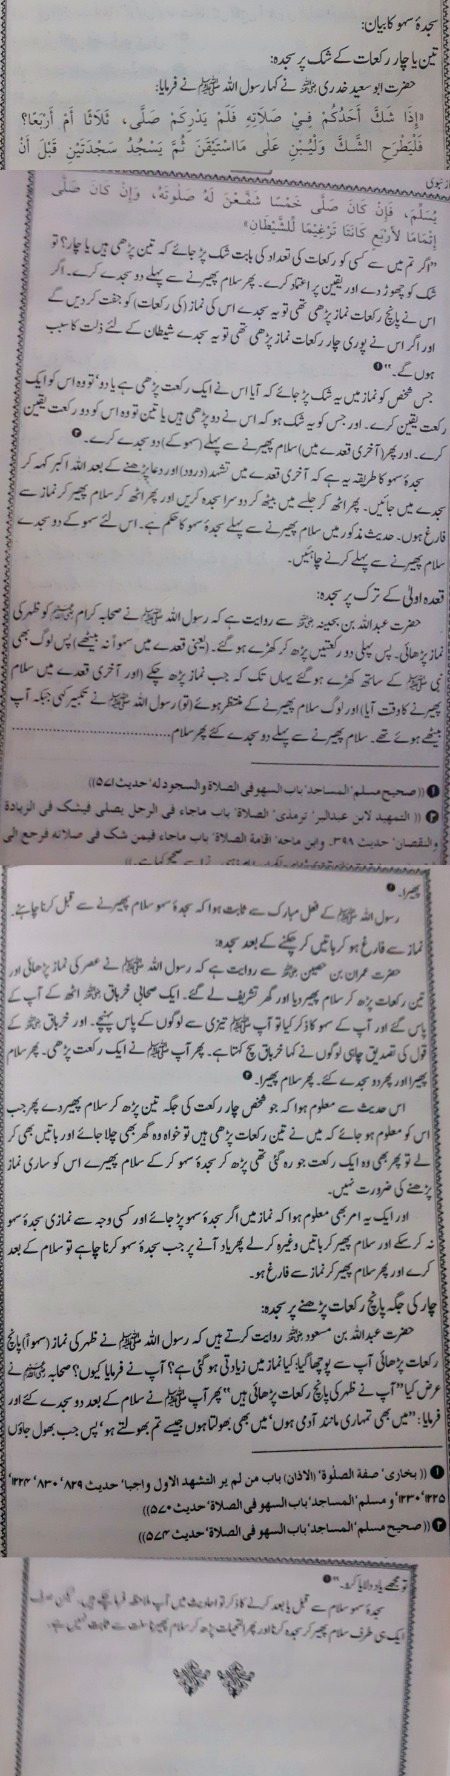 سجدۂ سہو کا بیان:
تین یا چار رکعات کے شک پر سجدہ:
حضرت ابو سعید خدری رضی اللہ عنہ نے کہا رسول اللہ ﷺ نے فرمایا:
«إِذَا شَكَّ أَحَدُكُمْ فِيْ صَلَاتِهِ فَلَمْ يَدْرِكَمْ صَلَّى، ثَلَاثًا أَمْ أَرْبَعًا؟
فَلْيَطْرَحِ الشَّكَّ وَلْيَبْنِ عَلَى مَااسْتَيْقَنَ ثُمَّ يَسْجُدُ سَجْدَتَيْنِ قَبْلَ أَنْ
يُسَلِّمَ، فَإِنْ كَانَ صَلَّى خَمْسًا شَفَعْنَ لَهُ صَلَوتَهُ، وَإِنْ كَانَ صَلَّى
إِتْمَامًا لِأَرْبَعٍ كَانَتَا تَرْغِيْمًا لِلشَّيْطَانِ»
”اگر تم میں سے کسی کو رکعات کی تعداد کی بابت شک پڑ جائے کہ تین پڑھی ہیں یا چار؟ تو
شک کو چھوڑ دے اور یقین پر اعتماد کرے۔ پھر سلام پھیرنے سے پہلے دو سجدے کرے۔ اگر
اس نے پانچ رکعات نماز پڑھی تھی تو یہ سجدے اس کی نماز (کی رکعات) کو جفت کر دیں گے
اور اگر اس نے پوری چار رکعات نماز پڑھی تھی تو یہ سجدے شیطان کے لئے ذلت کا سبب
ہوں گے۔“ ①
جس شخص کو نماز میں یہ شک پڑ جائے کہ آیا اس نے ایک رکعت پڑھی ہے یا دو‘ تو وہ اس کو ایک
رکعت یقین کرے۔ اور جس کو یہ شک ہو کہ اس نے دو پڑھی ہیں یا تین تو وہ اس کو دو رکعت یقین
کرے۔ اور پھر (آخری قعدے میں) سلام پھیرنے سے پہلے (سہو کے) دو سجدے کرے۔ ②
سجدۂ سہو کا طریقہ یہ ہے کہ آخری قعدے میں تشہد (درود) اور دعا پڑھنے کے بعد اللہ اکبر کہہ کر
سجدے میں جائیں۔ پھر اٹھ کر جلسے میں بیٹھ کر دوسرا سجدہ کریں اور پھر اٹھ کر سلام پھیر کر نماز سے
فارغ ہوں۔ حدیث مذکور میں سلام پھیرنے سے پہلے سجدۂ سہو کا حکم ہے۔ اس لئے سہو کے دو سجدے
سلام پھیرنے سے پہلے کرنے چاہئیں۔
قعدہ اولیٰ کے ترک پر سجدہ:
حضرت عبداللہ بن بحینہ رضی اللہ عنہ سے روایت ہے کہ رسول اللہ ﷺ نے صحابہ کرام رضی اللہ عنہم کو ظہر کی
نماز پڑھائی۔ پس پہلی دو رکعتیں پڑھ کر کھڑے ہو گئے۔ (یعنی قعدے میں سہواً نہ بیٹھے) پس لوگ بھی
نبی ﷺ کے ساتھ کھڑے ہو گئے یہاں تک کہ جب نماز پڑھ چکے (اور آخری قعدے میں سلام
پھیرنے کا وقت آیا) اور لوگ سلام پھیرنے کے منتظر ہوئے (تو) رسول اللہ ﷺ نے تکبیر کہی جبکہ آپ
بیٹھے ہوئے تھے۔ سلام پھیرنے سے پہلے دو سجدے کئے پھر سلام
① ((صحیح مسلم‘ المساجد‘ باب السهو فی الصلاة والسجود له‘ حدیث ۵۷۱))
② ((التمهید لابن عبدالبر‘ ترمذی‘ الصلاة‘ باب ماجاء فی الرجل یصلی فیشک فی الزیادة
والنقصان‘ حدیث ۳۹۸۔ وابن ماجه‘ اقامة الصلاة‘ باب ماجاء فیمن شک فی صلاته فرجع الی
پھیرا۔ ①
رسول اللہ ﷺ کے فعل مبارک سے ثابت ہوا کہ سجدۂ سہو سلام پھیرنے سے قبل کرنا چاہئے۔
نماز سے فارغ ہو کر باتیں کر چکنے کے بعد سجدہ:
حضرت عمران بن حصین رضی اللہ عنہ سے روایت ہے کہ رسول اللہ ﷺ نے عصر کی نماز پڑھائی اور
تین رکعات پڑھ کر سلام پھیر دیا اور گھر تشریف لے گئے۔ ایک صحابی خرباق رضی اللہ عنہ اٹھ کے آپ کے
پاس گئے اور آپ کے سہو کا ذکر کیا تو آپ ﷺ تیزی سے لوگوں کے پاس پہنچے۔ اور خرباق رضی اللہ عنہ کے
قول کی تصدیق چاہی لوگوں نے کہا خرباق سچ کہتا ہے۔ پھر آپ ﷺ نے ایک رکعت پڑھی۔ پھر سلام
پھیرا اور پھر دو سجدے کئے۔ پھر سلام پھیرا۔ ②
اس حدیث سے معلوم ہوا کہ جو شخص چار رکعت کی جگہ تین پڑھ کر سلام پھیر دے پھر جب
اس کو معلوم ہو جائے کہ میں نے تین رکعات پڑھی ہیں تو خواہ وہ گھر بھی چلا جائے اور باتیں بھی کر
لے تو پھر بھی وہ ایک رکعت جو رہ گئی تھی پڑھ کر سجدۂ سہو کر کے سلام پھیرے اس کو ساری نماز
پڑھنے کی ضرورت نہیں۔
اور ایک یہ امر بھی معلوم ہوا کہ نماز میں اگر سجدۂ سہو پڑ جائے اور کسی وجہ سے نمازی سجدۂ سہو
نہ کر سکے اور سلام پھیر کر باتیں وغیرہ کر لے پھر یاد آنے پر جب سجدۂ سہو کرنا چاہے تو سلام کے بعد
کرے اور پھر سلام پھیر کر نماز سے فارغ ہو۔
چار کی جگہ پانچ رکعات پڑھنے پر سجدہ:
حضرت عبداللہ بن مسعود رضی اللہ عنہ روایت کرتے ہیں کہ رسول اللہ ﷺ نے ظہر کی نماز (سہواً) پانچ
رکعات پڑھائی آپ سے پوچھا گیا: کیا نماز میں زیادتی ہو گئی ہے؟ آپ نے فرمایا کیوں؟ صحابہ رضی اللہ عنہم نے
عرض کیا ”آپ نے ظہر کی پانچ رکعات پڑھائی ہیں“ پھر آپ ﷺ نے سلام کے بعد دو سجدے کئے اور
فرمایا: ”میں بھی تمہاری مانند آدمی ہوں‘ میں بھی بھولتا ہوں جیسے تم بھولتے ہو‘ پس جب بھول جاؤں
① ((بخاری‘ صفة الصلوة‘ (الاذان) باب من لم یر التشهد الاول واجبا‘ حدیث ۸۲۹‘ ۸۳۰‘ ۱۲۲۴‘
۱۲۲۵‘ ۱۲۳۰‘ و مسلم‘ المساجد‘ باب السهو فی الصلاة‘ حدیث ۵۷۰))
② ((صحیح مسلم‘ المساجد‘ باب السهو فی الصلاة‘ حدیث ۵۷۴))
تو مجھے یاد دلایا کرو۔“ ①
سجدۂ سہو سلام سے قبل یا بعد کرنے کا ذکر تو احادیث میں آپ ملاحظہ فرما چکے ہیں۔ لیکن صرف
ایک ہی طرف سلام پھیر کر سجدہ کرنا اور پھر التحیات پڑھ کر سلام پھیرنا سنت سے ثابت نہیں ہے۔